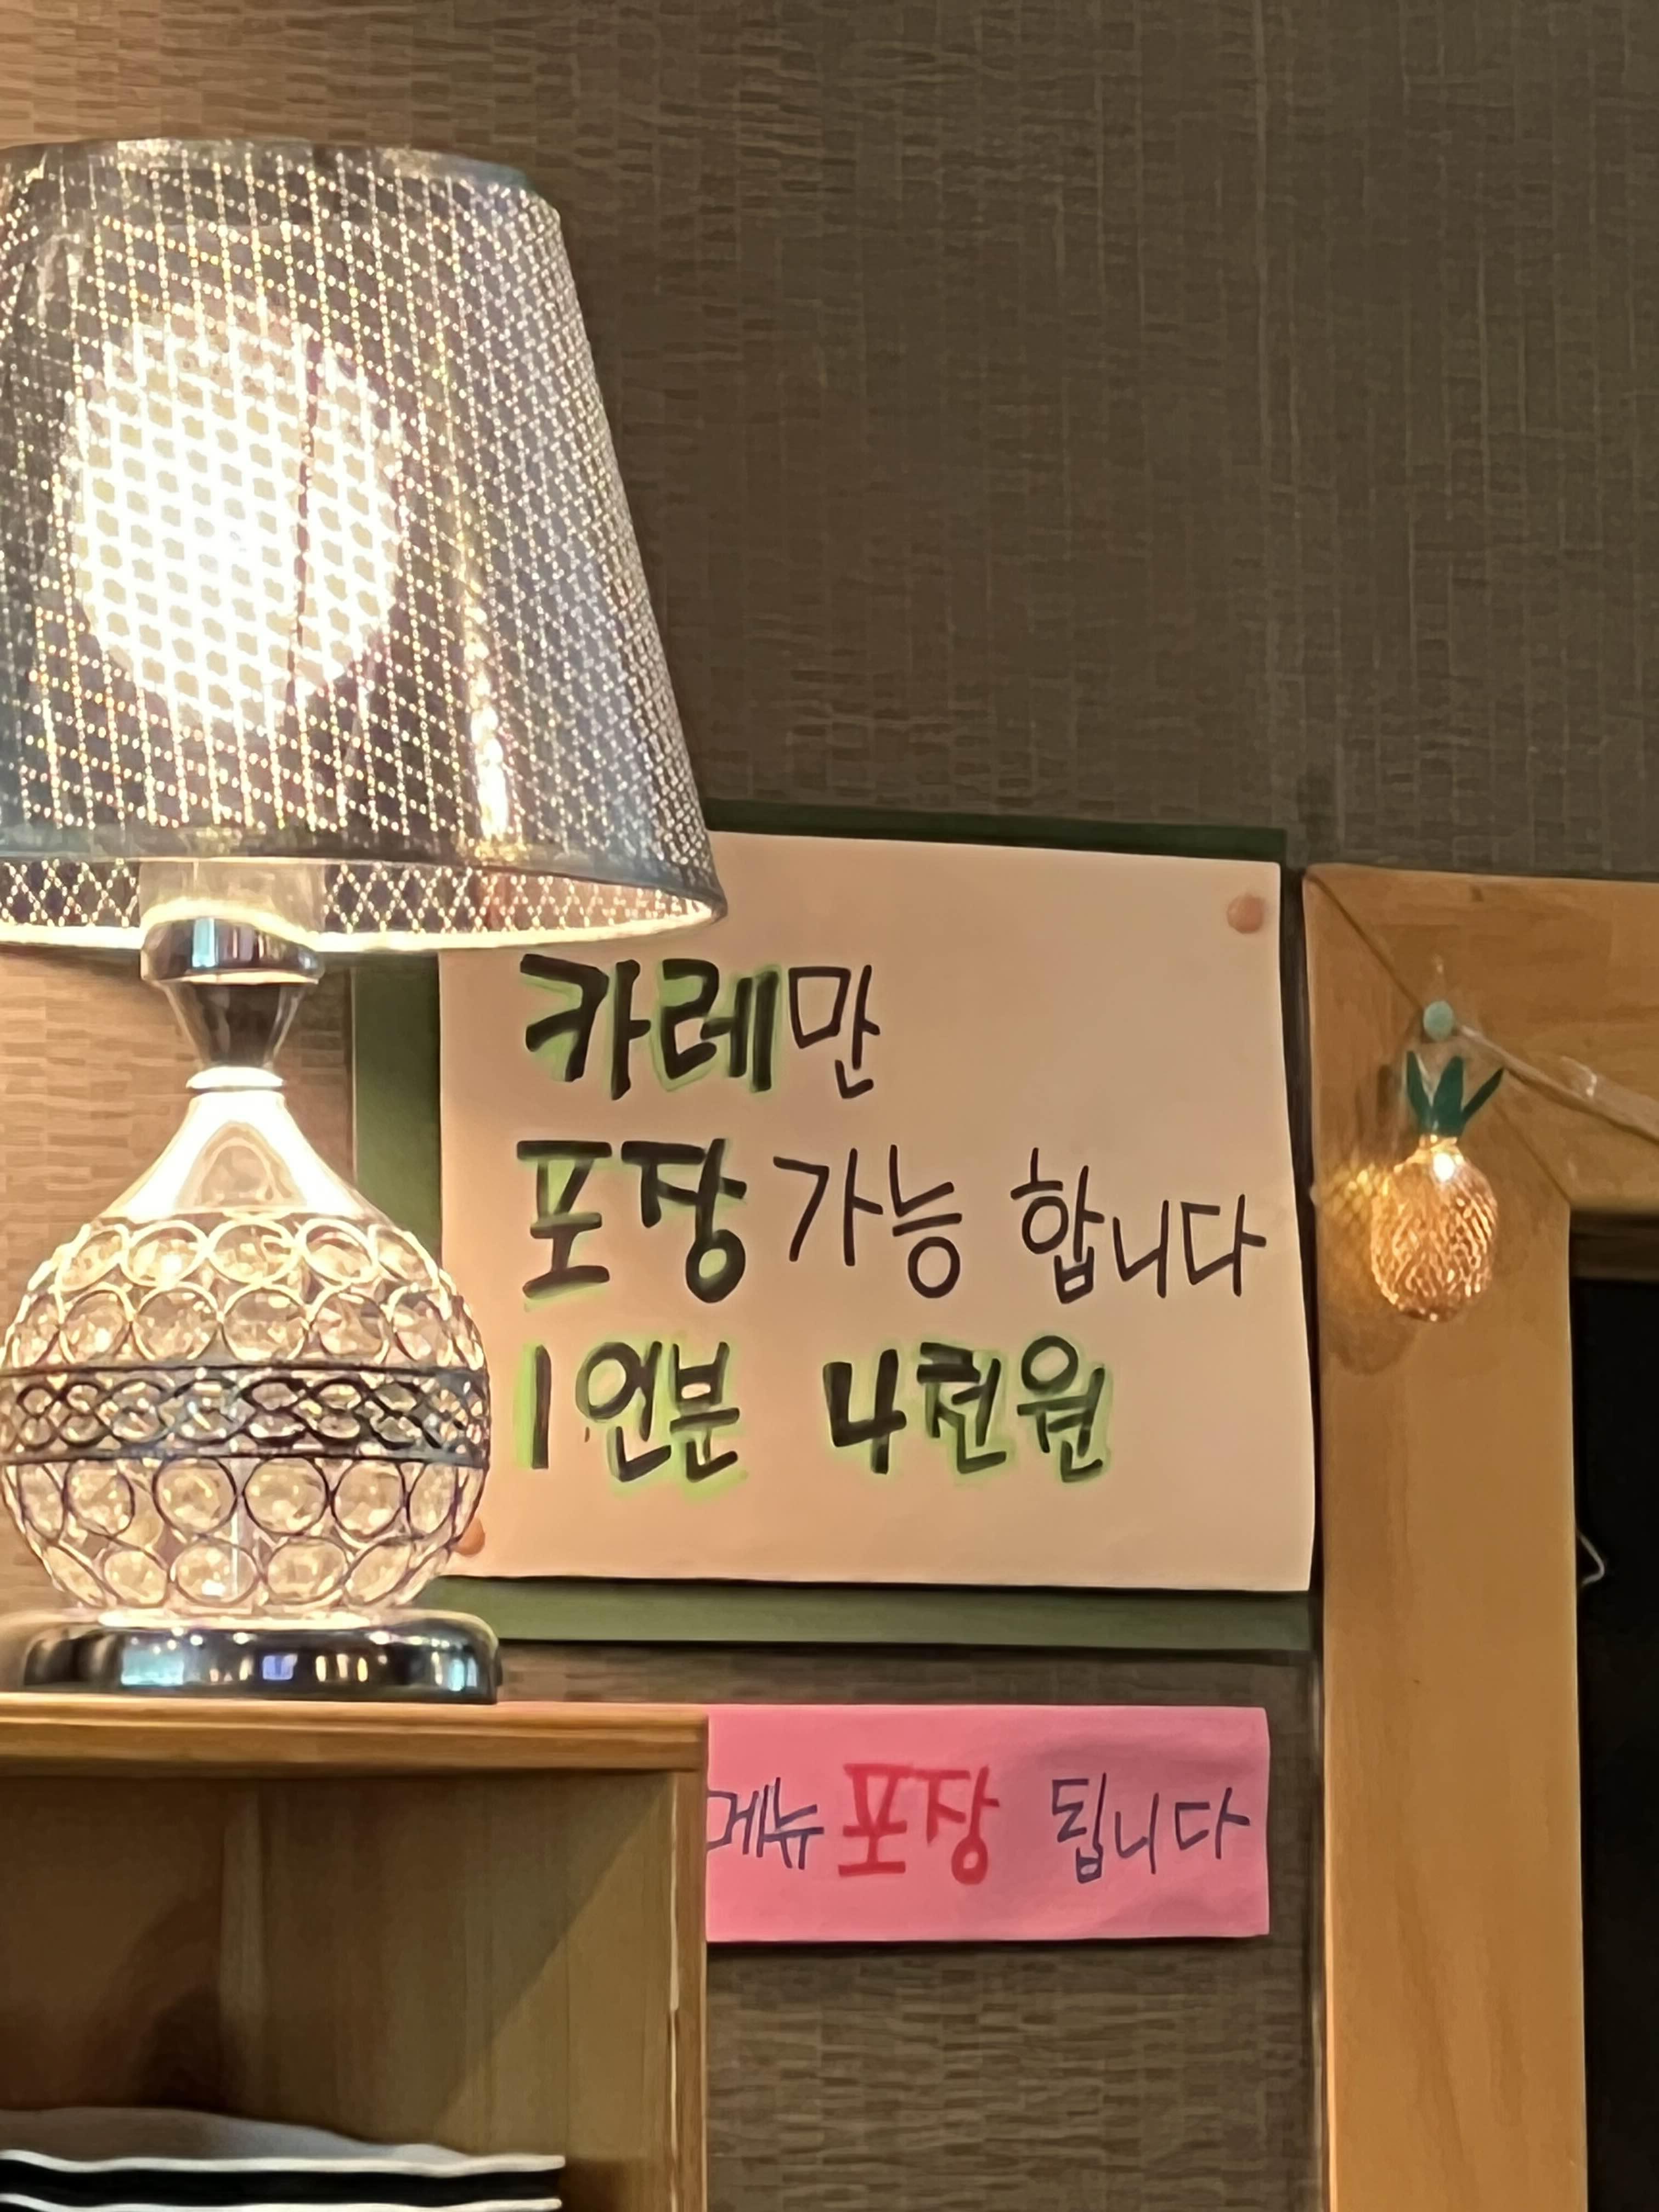 카레만
포장 가능 합니다
1인분 4천원
메뉴 포장 됩니다